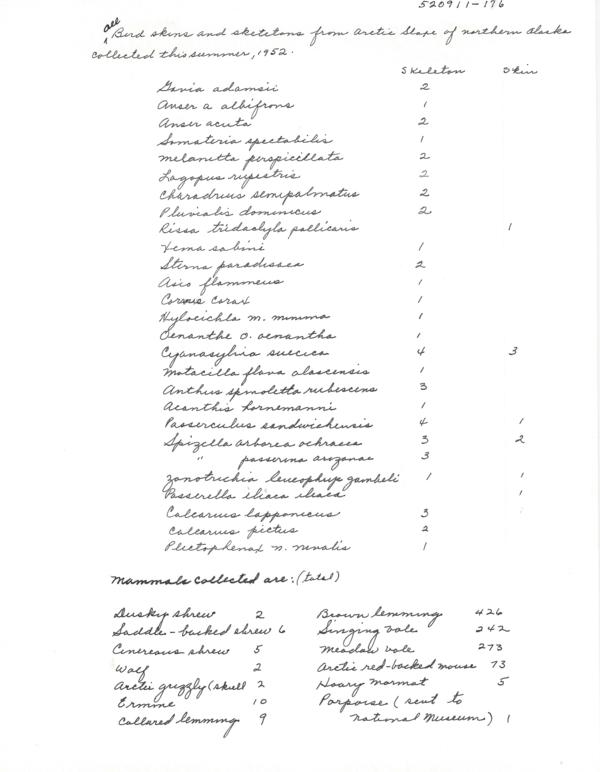 520911-176
all
Bird skins and skeletons from Arctic Slope of northern Alaska
collected this summer, 1952.
Skeleton Skin
Gavia adamsii 2
Anser a albifrons 1
Anser acuta 2
Somateria spectabilis 1
Melanitta perspicillata 2
Lagopus rupestris 2
Charadrius semipalmatus 2
Pluvialis dominicus 2
Rissa tridactyla pollicaris 1
Xema sabini 1
Sterna paradisaea 2
Asio flammeus 1
Corvus corax 1
Hylocichla m. minima 1
Oenanthe o. oenantha 1
Cyanasylvia suecica 4 3
Motacilla flava alascensis 1
Anthus spinoletta rubescens 3
Acanthis hornemanni 1
Passerculus sandwichensis 4 1
Spizella arborea ochracea 3 2
" passerina arizonae 3
Zonotrichia leucophrys gambeli 1 1
Passerella iliaca iliaca 1
Calcarius lapponicus 3
Calcarius pictus 2
Plectophenax n. nivalis 1
Mammals collected are: (total)
Dusky shrew 2 Brown lemming 426
Saddle-backed shrew 6 Singing vole 242
Cinereous shrew 5 Meadow vole 273
Wolf 2 Arctic red-backed mouse 73
Arctic grizzly (skull 2 Hoary marmot 5
Ermine 10 Porpoise (sent to
Collared lemming 9 National Museum) 1